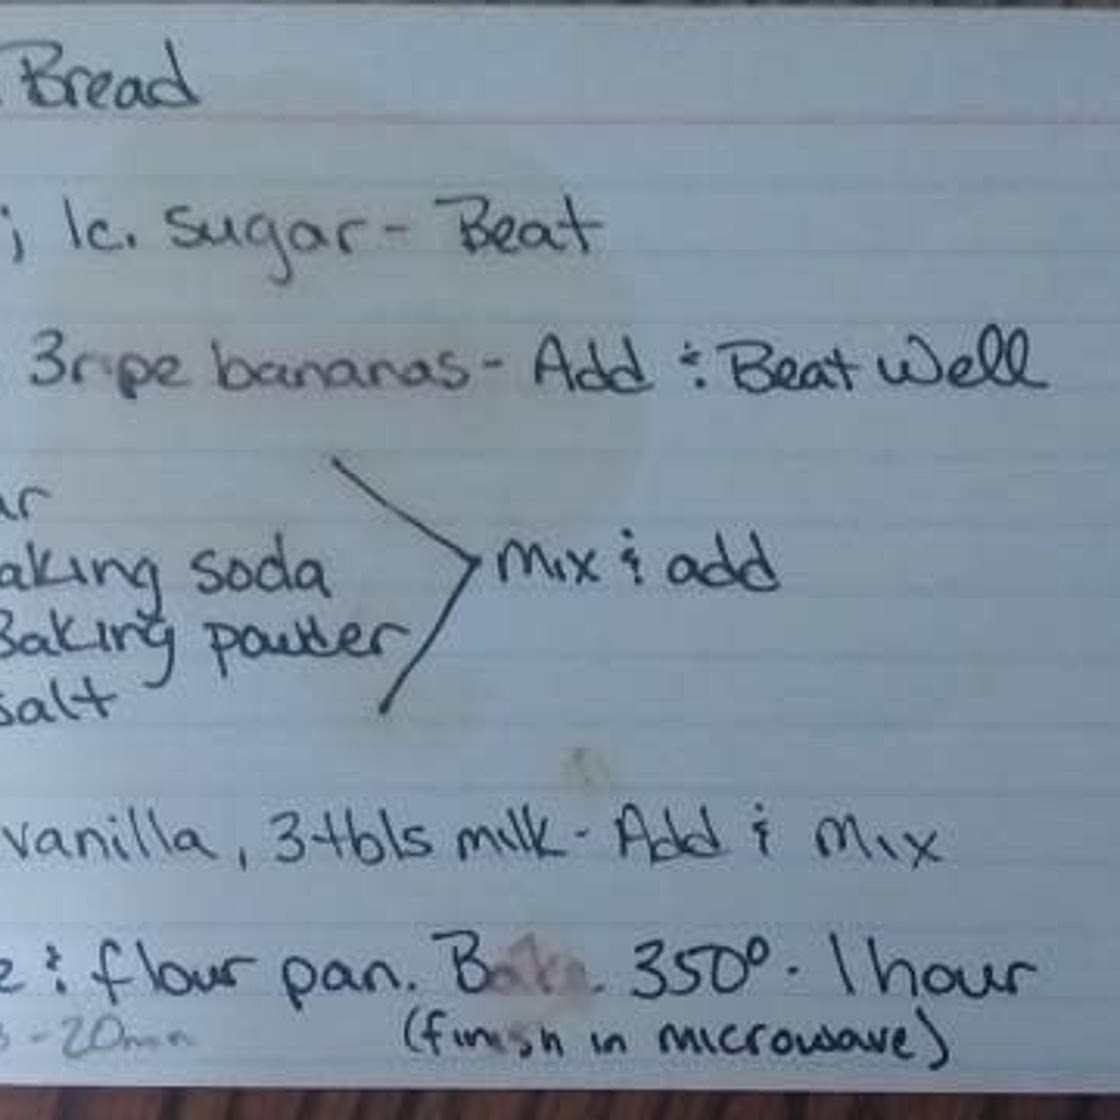 Bread
; 1c. sugar - Beat
3 ripe bananas - Add & Beat Well
ar
aking soda
Baking powder
salt
mix & add
vanilla, 3 tbls milk - Add & Mix
e & flour pan. Bake. 350° - 1 hour
- 20min
(finish in microwave)